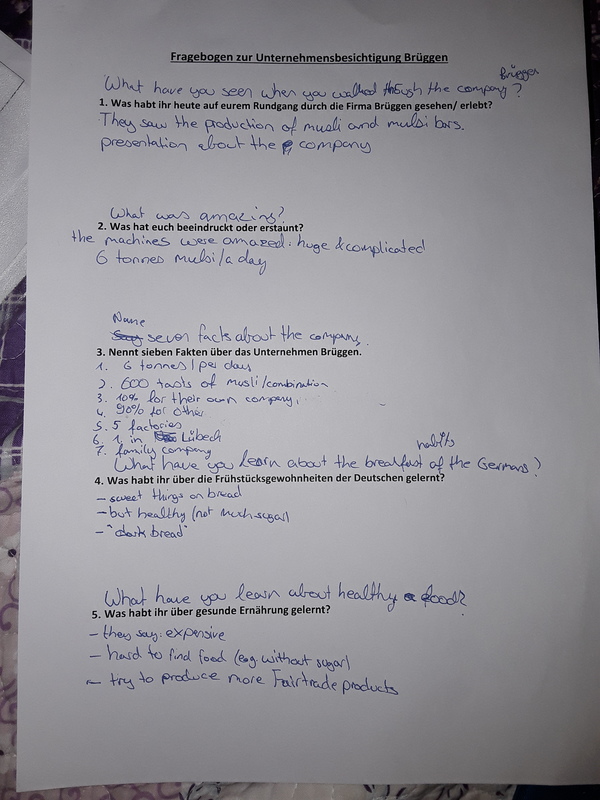 Fragebogen zur Unternehmensbesichtigung Brüggen
Brüggen
What have you seen when you walked through the company?
1. Was habt ihr heute auf eurem Rundgang durch die Firma Brüggen gesehen/ erlebt?
They saw the production of musli and mulsi bars.
presentation about the company
What was amazing?
2. Was hat euch beeindruckt oder erstaunt?
the machines were amazed: huge & complicated
6 tonnes mulsi/a day
Name
seven facts about the company.
3. Nennt sieben Fakten über das Unternehmen Brüggen.
1. 6 tonnes/per day
2. 600 tasts of musli/combination
3. 10% for their own company,
4. 90% for other
5. 5 factories
6. 1 in Lübech
7. family company
habits
What have you learn about the breakfast of the Germans?
4. Was habt ihr über die Frühstücksgewohnheiten der Deutschen gelernt?
- sweet things on bread
- but healthy (not much sugar)
- "dark bread"
What have you learn about healthy food?
5. Was habt ihr über gesunde Ernährung gelernt?
- they say: expensive
- hard to find food (e.g. without sugar)
- try to produce more Fairtrade products